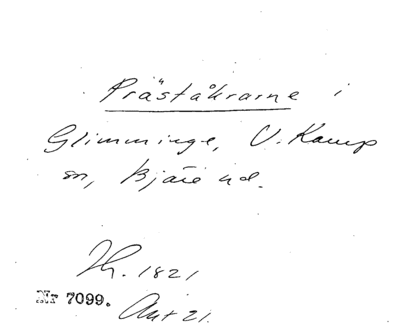 Präståkrarne i
Glimminge, V. Karup
sn, Bjäre hd.
Th. 1821
Nr 7099. Akt 21.